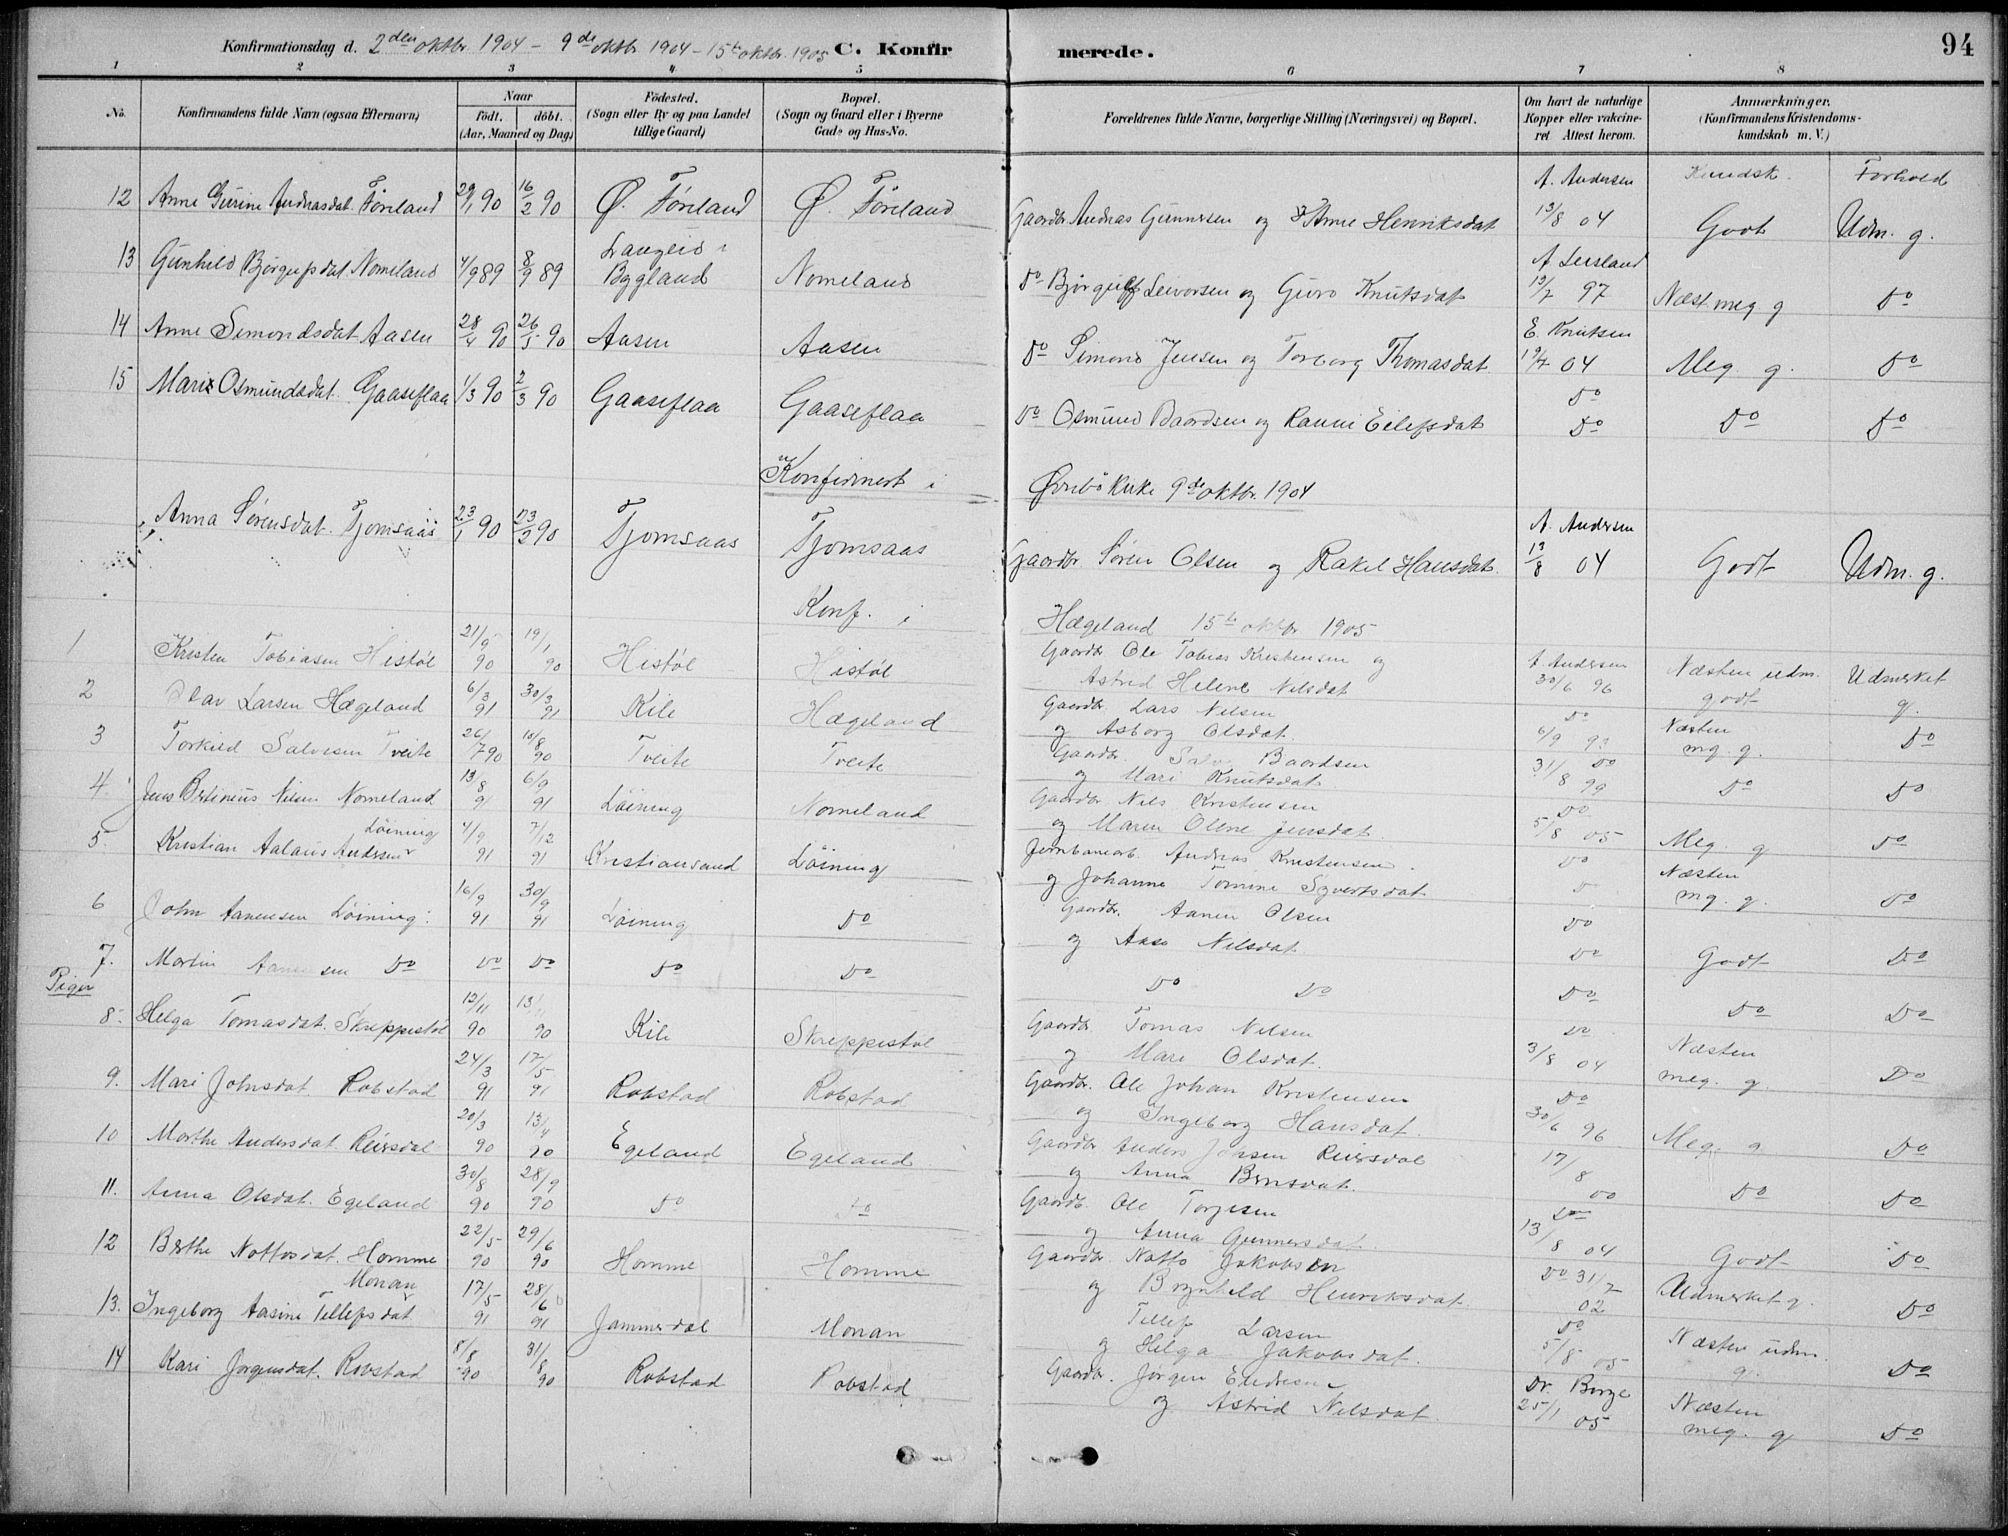 Konfirmationsdag d. 2den oktbr 1904 - 9de oktbr 1904 - 15de oktbr. 1905 C. Konfirmerede. 94
1 2 3 4 5 6 7 8
No. Konfirmandens fulde Navn (ogsaa Efternavn) Naar født. døbt. (Aar, Maaned og Dag) Fødested. (Sogn eller By og paa Landet tillige Gaard) Bopæl. (Sogn og Gaard eller i Byerne Gade og Hus-No. Forældrenes fulde Navne, borgerlige Stilling (Næringsvei) og Bopæl. Om havt de naturlige Kopper eller vakcineret Attest herom. Anmærkninger. (Konfirmandens Kristendomskundskab m. V.)
Kundsk. Forhold
12 Anne Gurine Andreasdat. Føreland 29/1 90 16/2 90 Ø. Føreland Ø. Føreland Gaardbr. Andreas Gunnersen og Anne Henriksdat A. Andersen 13/8 04 Godt Udm. g.
13 Gunhild Bjørgufsdat Nomeland 4/9 89 8/9 89 Langeid i Bygland Nomeland Do Bjørgulf Leivorsen og Guro Knutsdat A Leisland 13/7 97 Næst. meg g Do
14 Anne Simondsdat Aasen 28/4 90 26/5 90 Aasen Aasen Do Simond Jensen og Torborg Thomasdat. E. Knutsen 19/7 04 Meg. g. Do
15 Mari Osmundsdat. Gaaseflaa 1/3 90 2/3 90 Gaaseflaa Gaaseflaa Do Osmund Baardsen og Ranni Eilefsdat Do Do Do Do
Konfirmert i Øvrebø kirke 9de oktbr. 1904
Anna Sørensdat. Tjomsaas 23/1 90 23/2 90 Tjomsaas Tjomsaas Gaardbr Søren Olsen og Rakel Hansdat. A. Andersen 13/8 04 Godt Udm. g.
Konf. i Hægeland 15de oktbr. 1905
1 Kristen Tobiasen Histøl 21/9 90 19/1 90 Histøl Histøl Gaardbr Ole Tobias Kristensen og Astrid Helene Nilsdat A. Andersen 30/6 96 Næsten udm. godt Udmerket g.
2 Olav Larsen Hægeland 6/3 91 30/3 91 Kile Hægeland Gaardbr. Lars Nilsen og Asborg Olsdat. Do 6/9 93 Næsten mg. g. Do
3 Torkild Salvesen Tveite 26/7 90 10/8 90 Tveite Tveite Gaardbr. Salve Baardsen og Mari Knutsdat. Do 31/8 99 Do Do
4. Jens Bertinius Nilsen Nomeland 13/8 91 6/9 91 Løining Nomeland Gaardbr. Nils Kristensen og Maren Olene Jensdat. Do 5/8 05 Meg. g Do
5. Kristian Aalaus Andersen Løining 4/9 91 7/12 91 Kristiansand Løining Jernbanearb. Andreas Kristensen og Johanne Tomine Syvertsdat Do Næsten mg. g. Do
6 John Aanensen Løining. 16/9 91 30/9 91 Løining Do Gaardbr. Aanen Olsen og Aase Nilsdat. Do Do Godt Do
7. Martin Aanensen Do Do Do Do Do Do Do Do Do Do
Piger
8. Helga Tomasdat. Skreppestøl 12/11 90 13/11 90 Kile Skreppestøl Gaardbr Tomas Nilsen og Mari Olsdat. Do 3/8 04 Næsten meg. g. Do
9. Mari Johnsdat. Robstad 24/3 91 17/5 91 Robstad Robstad Gaardbr. Ole Johan Kristensen og Ingeborg Hansdat. Do 30/6 96 Meg. g Do
10 Marthe Andersdat Reiersdal 20/3 90 13/4 90 Egeland Egeland Gaardbr Anders Jensen Reiersdal og Anna Berntsdat. 17/8 00 Do Do
11. Anna Olsdat. Egeland 30/8 90 28/9 90 Do Do Gaardbr. Ole Torjesen og Anna Gunnersdat. Do 13/8 04 Godt Do
12 Berthe Nottosdat. Homme 22/5 90 29/6 90 Homme Homme Gaardbr. Notto Jakobsen og Brynhild Henriksdat. Do 31/7 02 Udmerket g. Do
13. Ingeborg Aasine Tellefsdat Monan 17/5 91 28/6 91 Jammerdal Monan Tellef Larsen og Helga Jakobsdat. Do 5/8 05 Næsten udm. g. Do
14 Kari Jørgensdat. Robstad 8/8 90 31/8 90 Robstad Robstad Gaardbr. Jørgen Endresen og Astrid Nilsdat Dr. Borge 25/1 05 Næsten meg. g Do